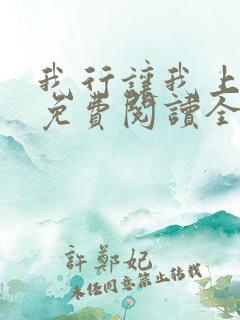 我行讓我上
免費閱讀全
許鄭妃
未经同意禁止转载